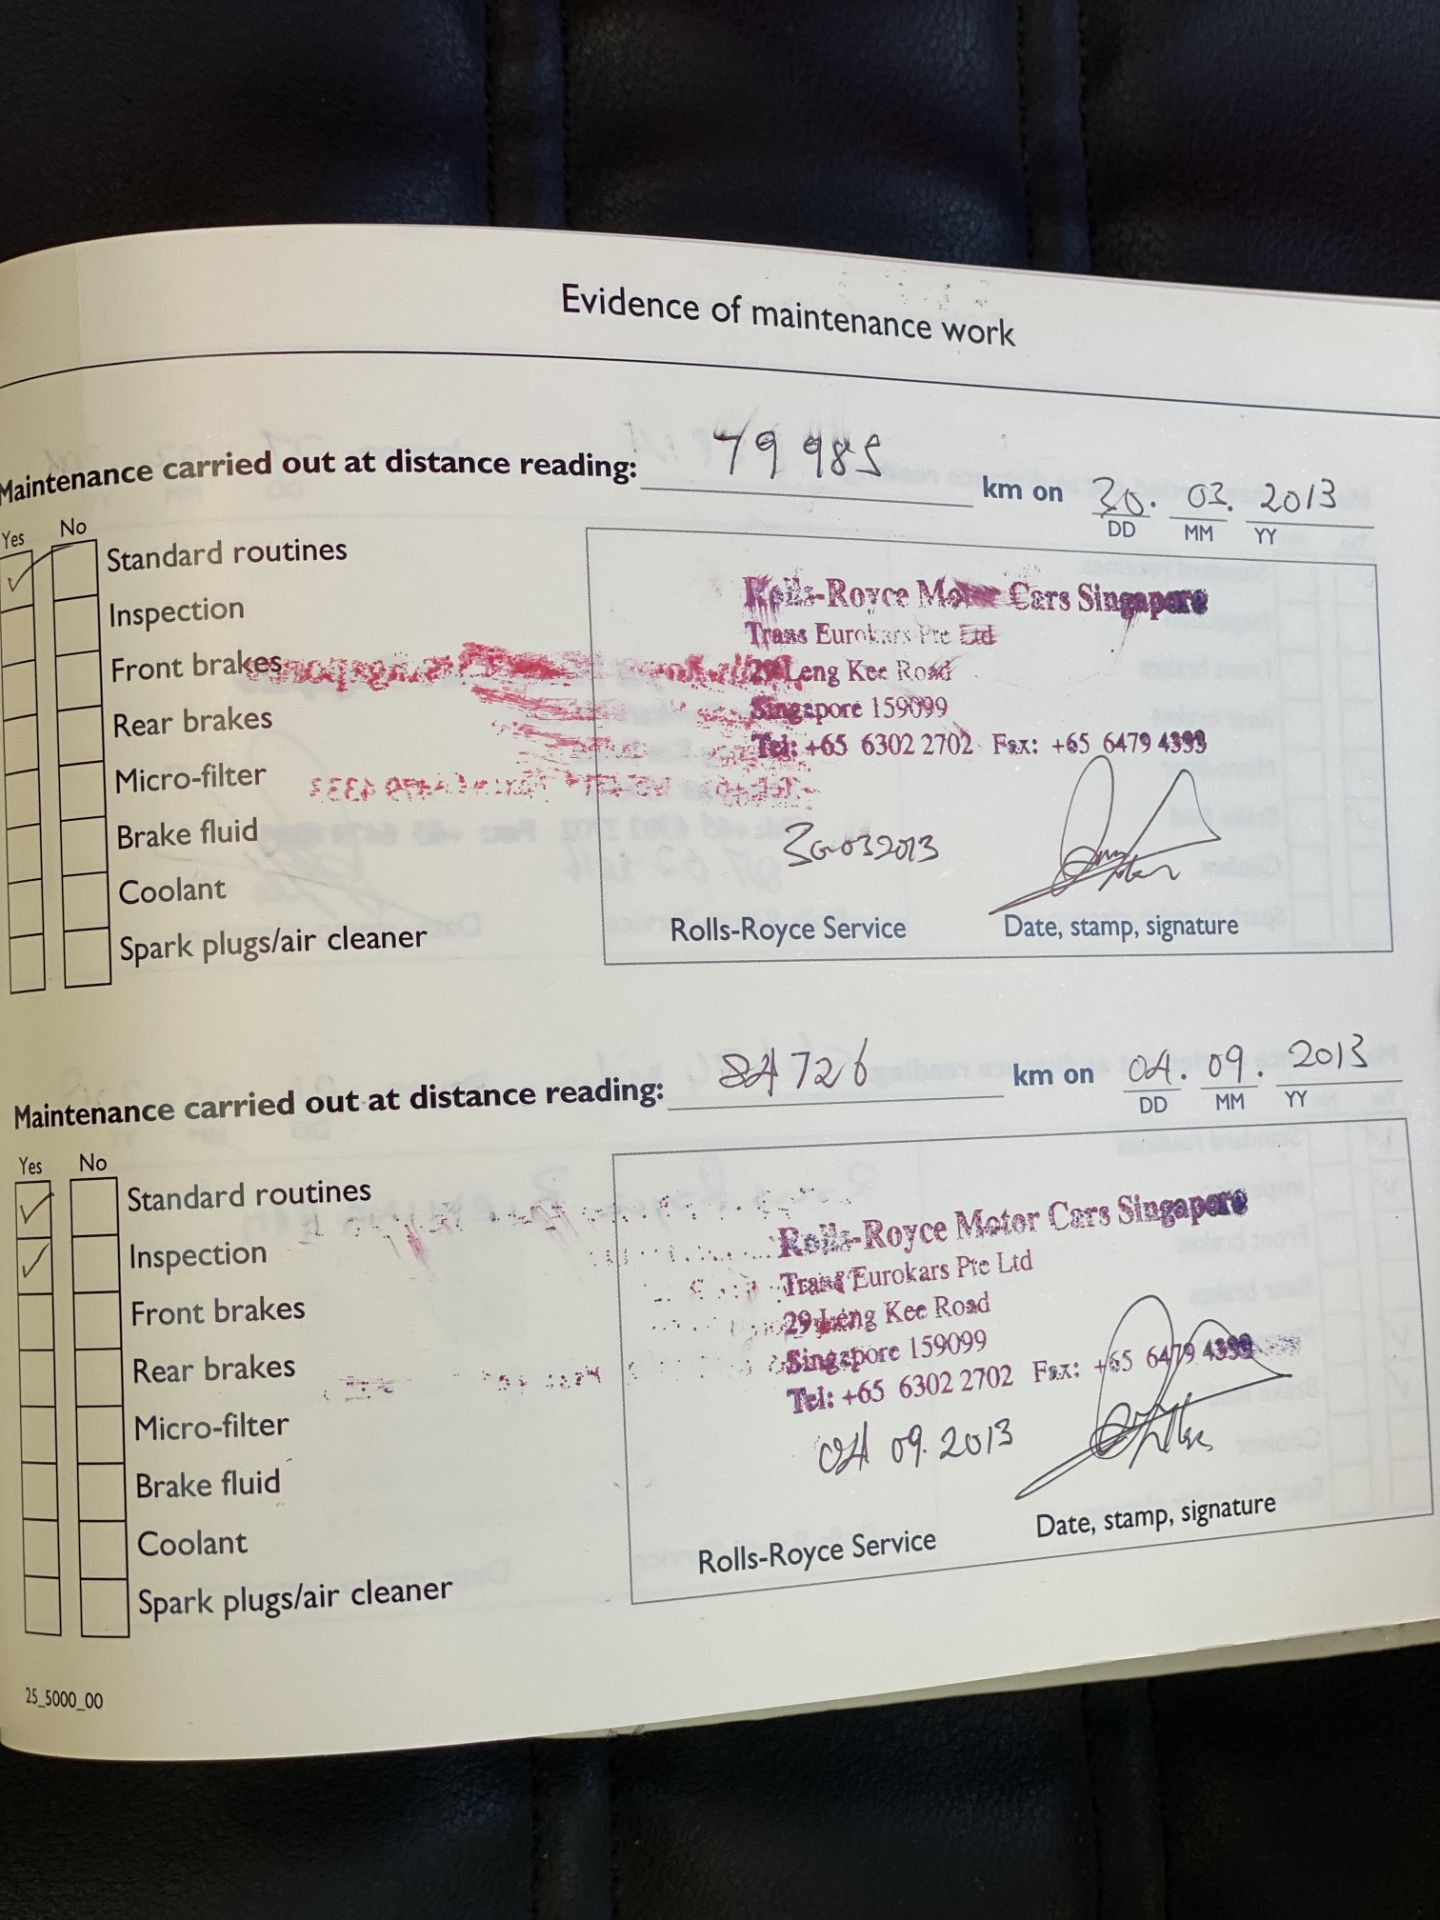 Evidence of maintenance work
Maintenance carried out at distance reading: 79 985 km on 30. 03. 2013
DD MM YY
Yes No
Standard routines
Inspection
Front brakes
Rear brakes
Micro-filter
Brake fluid
Coolant
Spark plugs/air cleaner
Rolls-Royce Motor Cars Singapore
Trans Eurokars Pte Ltd
29 Leng Kee Road
Singapore 159099
Tel: +65 6302 2702 Fax: +65 6479 4333
30.03 2013
Rolls-Royce Service Date, stamp, signature
Maintenance carried out at distance reading: 84 726 km on 04. 09. 2013
DD MM YY
Yes No
Standard routines
Inspection
Front brakes
Rear brakes
Micro-filter
Brake fluid
Coolant
Spark plugs/air cleaner
Rolls-Royce Motor Cars Singapore
Trans Eurokars Pte Ltd
29 Leng Kee Road
Singapore 159099
Tel: +65 6302 2702 Fax: +65 6479 4333
04 09. 2013
Rolls-Royce Service Date, stamp, signature
25_5000_00